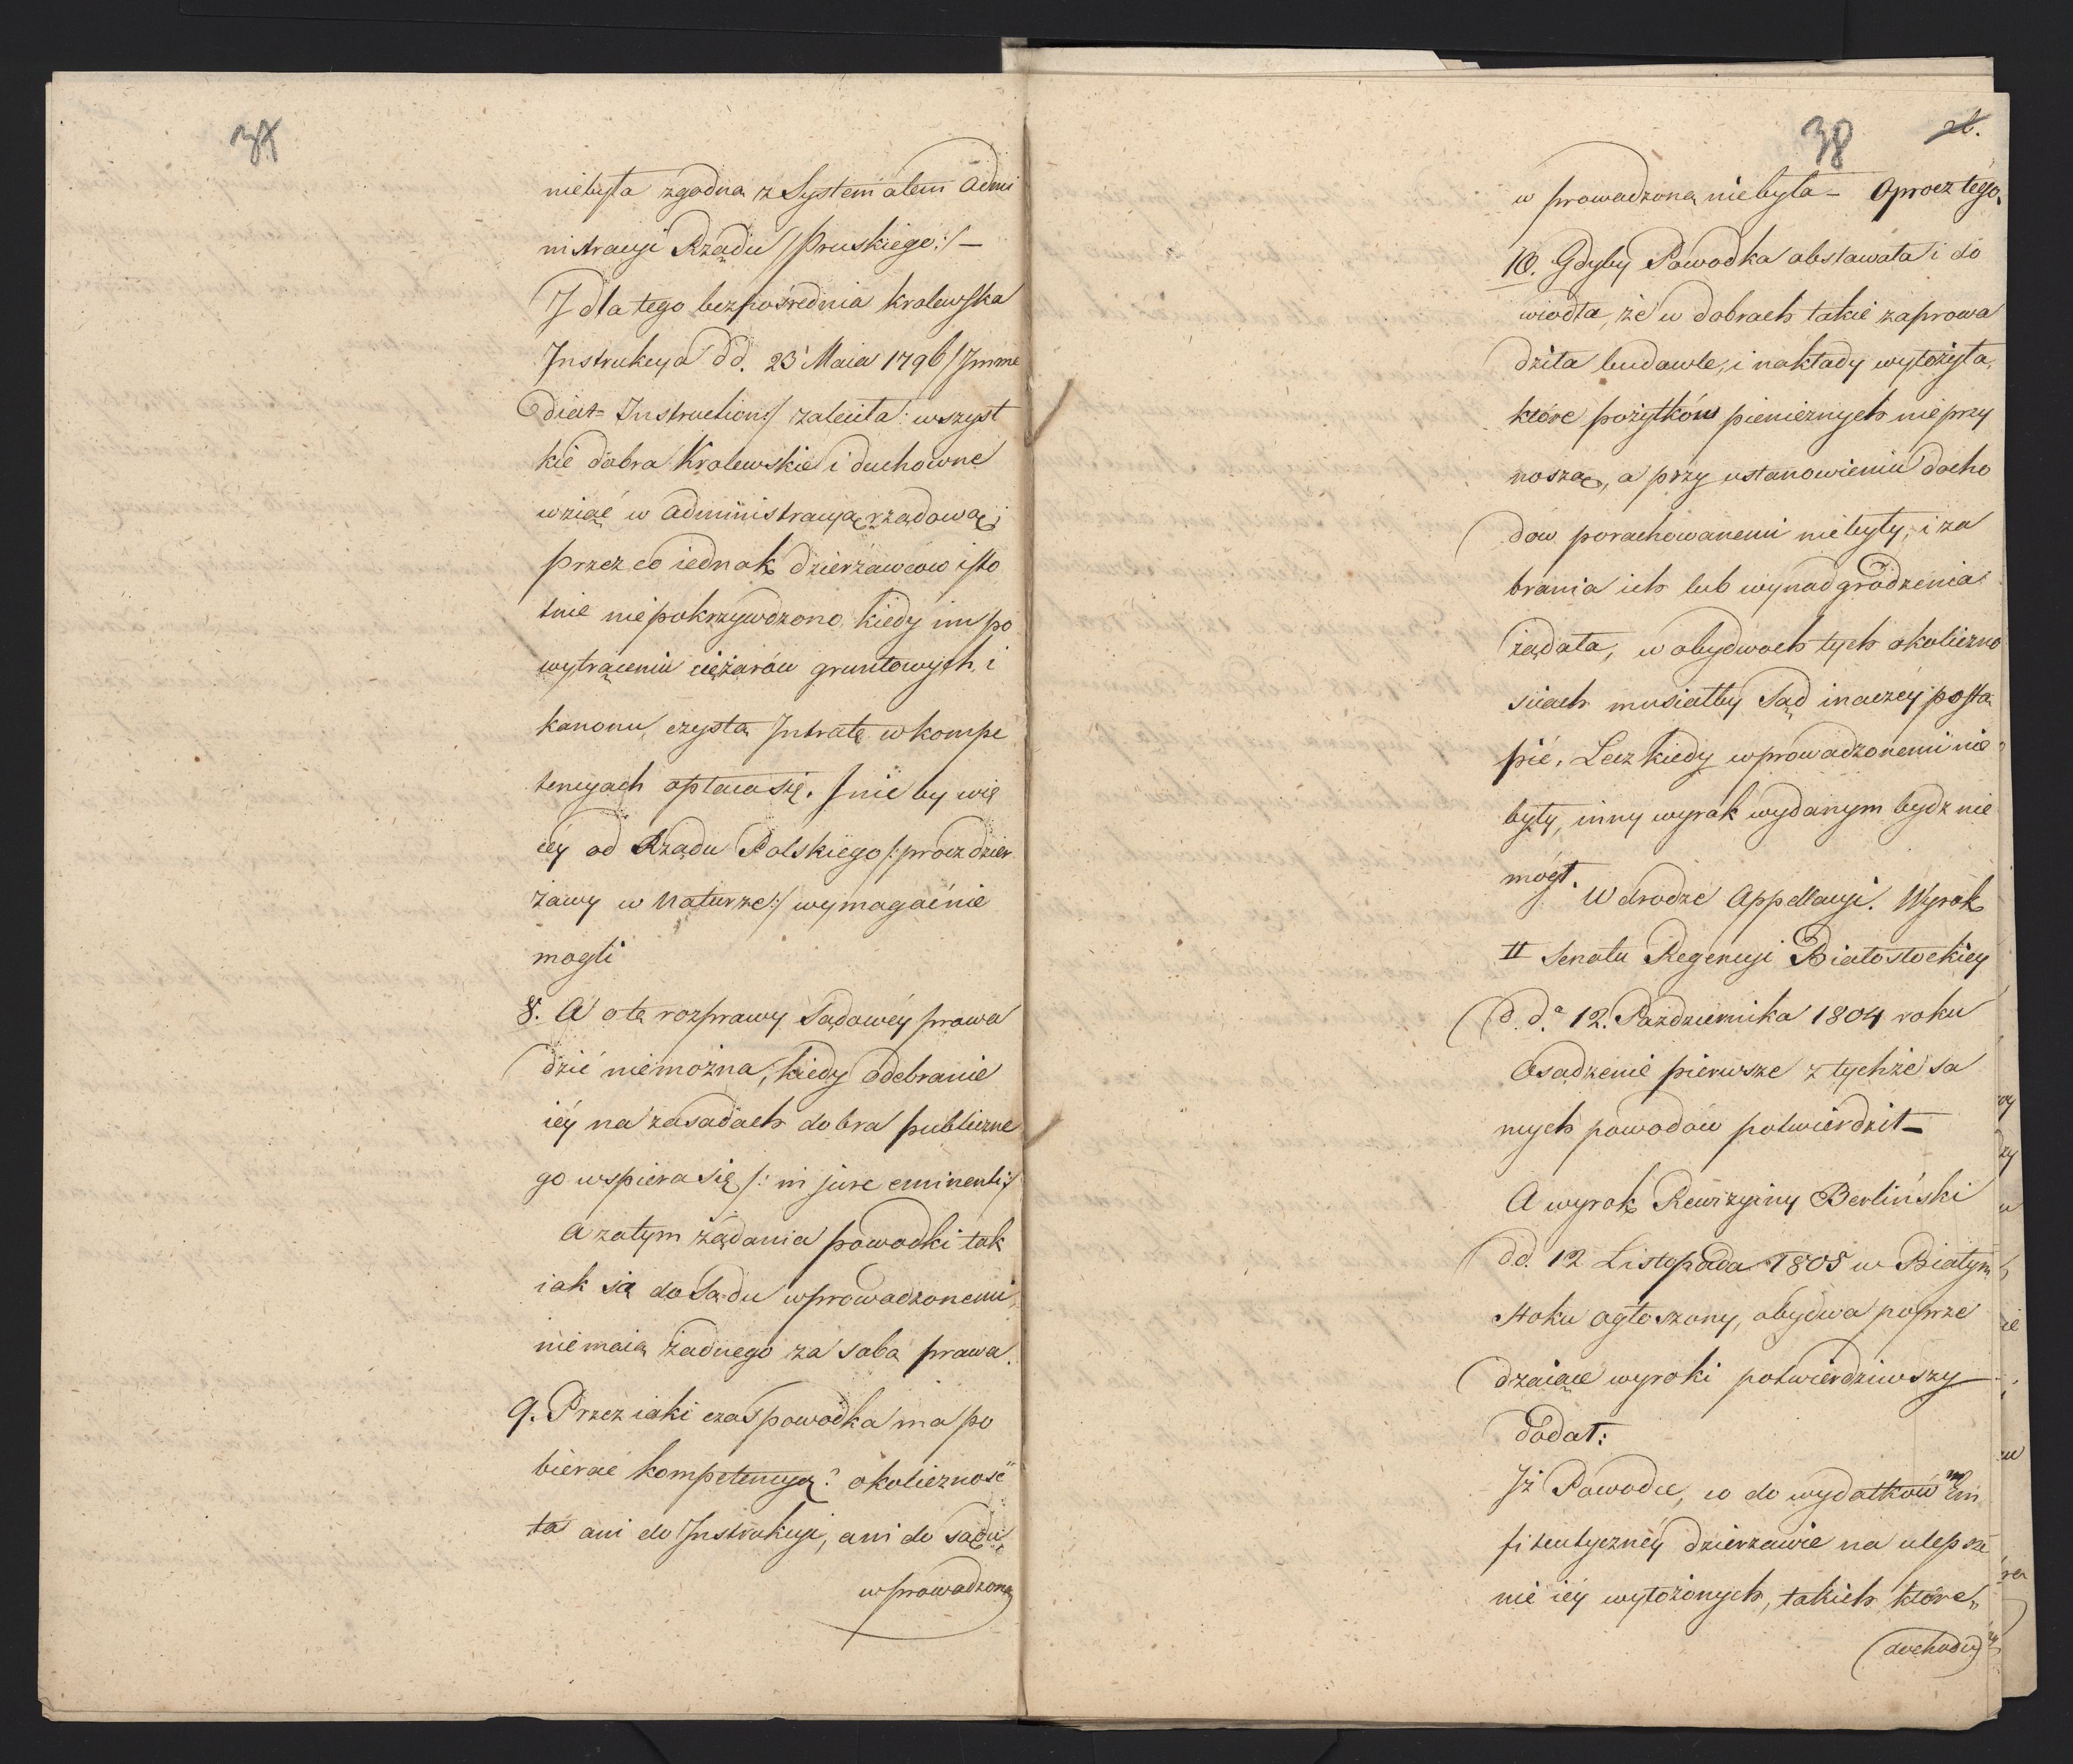 niebyła zgodną z Systematem admi
nistracyi Rządu /:Pruskiego:/ —
I dla tego bezpośrednia Krolewska
Instrukcya dd. 23 Maia 1796 /Imme
diat-Instruction:/ zaleciła: wszyst
kie dobra Krolewskie i duchowne
wziąć w administracyą rządową;
przez co iednak dzierżawcow isto
tnie niepokrzywdzono, kiedy im po
wytrąceniu ciężarów gruntowych i
kanonu, czysta Intrata w kompe
tencyach opłaca się. I nie by wię
céy od Rządu Polskiego /: procz dzier
żawy w naturze:/ wymagać nie
mogli
8. A o tę rozprawy Sądowéy prowa
dzić niemożna, kiedy odebranie
iéy na zasadach dobra publiczne
go wspiera się /: in jure eminenti:/
A zatym żądania powodki tak
iak są do Sądu wprowadzonemi,
niemaią żadnego za sobą prawa.
9. Przez iaki czas powodka ma po
bierać kompetencyą? okoliczność
ta ani do Instrukcyi, ani do sądu
wprowadzoną
38
w prowadzoną niebyła — Oprocz tego,
10. Gdyby Powodka obstawała i do
wiodła, że w dobrach takie zaprowa
dziła budowle, i nakłady wyłożyła,
które pożytków pienieznych nieprzy
noszą, a przy ustanowieniu docho
dów porachowanemi niebyły, i za
brania ich lub wynadgrodzenia
żądała, w obydwoch tych okoliczno
sciach musiałby Sąd inaczéy postą
pić. Lecz kiedy wprowadzonemi nie
były, inny wyrok wydanym bydz nie
mógł.
W drodze Appellacyi. Wyrok
II Senatu Regencyi Białostockiey
d. d. 12. Pazdziernika 1804 roku
Osądzenie pierwsze z tychże sa
mych powodów potwierdził —
A wyrok Rewizyiny Berliński
dd. 12 Listopada 1805 w Białym
stoku ogłoszony, obydwa poprze
dzaiące wyroki potwierdziwszy
dodał:
Iż Powodce, co do wydatków w Em
fiteutycznéy dzierżawie na ulepsze
nie iéy wyłożonych, takich które
dochodu